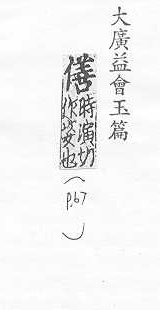 大廣益會玉篇
僐
時演切
作姿也
(p.67)